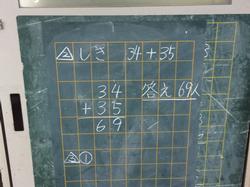 △2 しき 34+35
34 答え 69人
+35
69
△2 ①